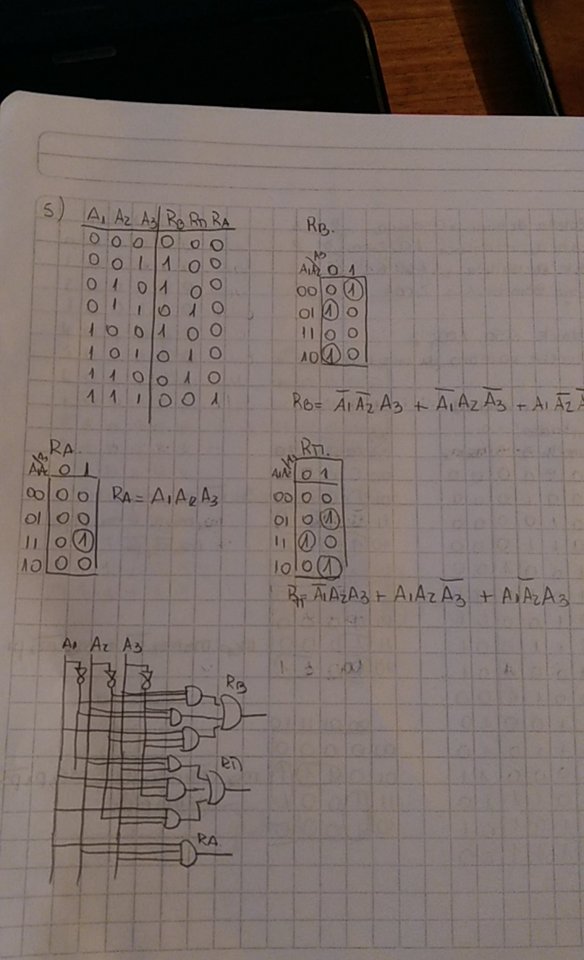 5)
A1 A2 A3 RB RΠ RA
0 0 0 0 0 0
0 0 1 1 0 0
0 1 0 1 0 0
0 1 1 0 1 0
1 0 0 1 0 0
1 0 1 0 1 0
1 1 0 0 1 0
1 1 1 0 0 1
RB.
A1A2 A3 0 1
00 0 1
01 1 0
11 0 0
10 1 0
RB= A̅1A̅2A3 + A̅1A2A̅3 + A1A̅2
RA.
0 1
00 0 0
01 0 0
11 0 1
10 0 0
RA= A1A2A3
RΠ.
A1A2 A3 0 1
00 0 0
01 0 1
11 1 0
10 0 1
RΠ= A̅1A2A3 + A1A2A̅3 + A1A̅2A3
A1 A2 A3
RB
RΠ
RA